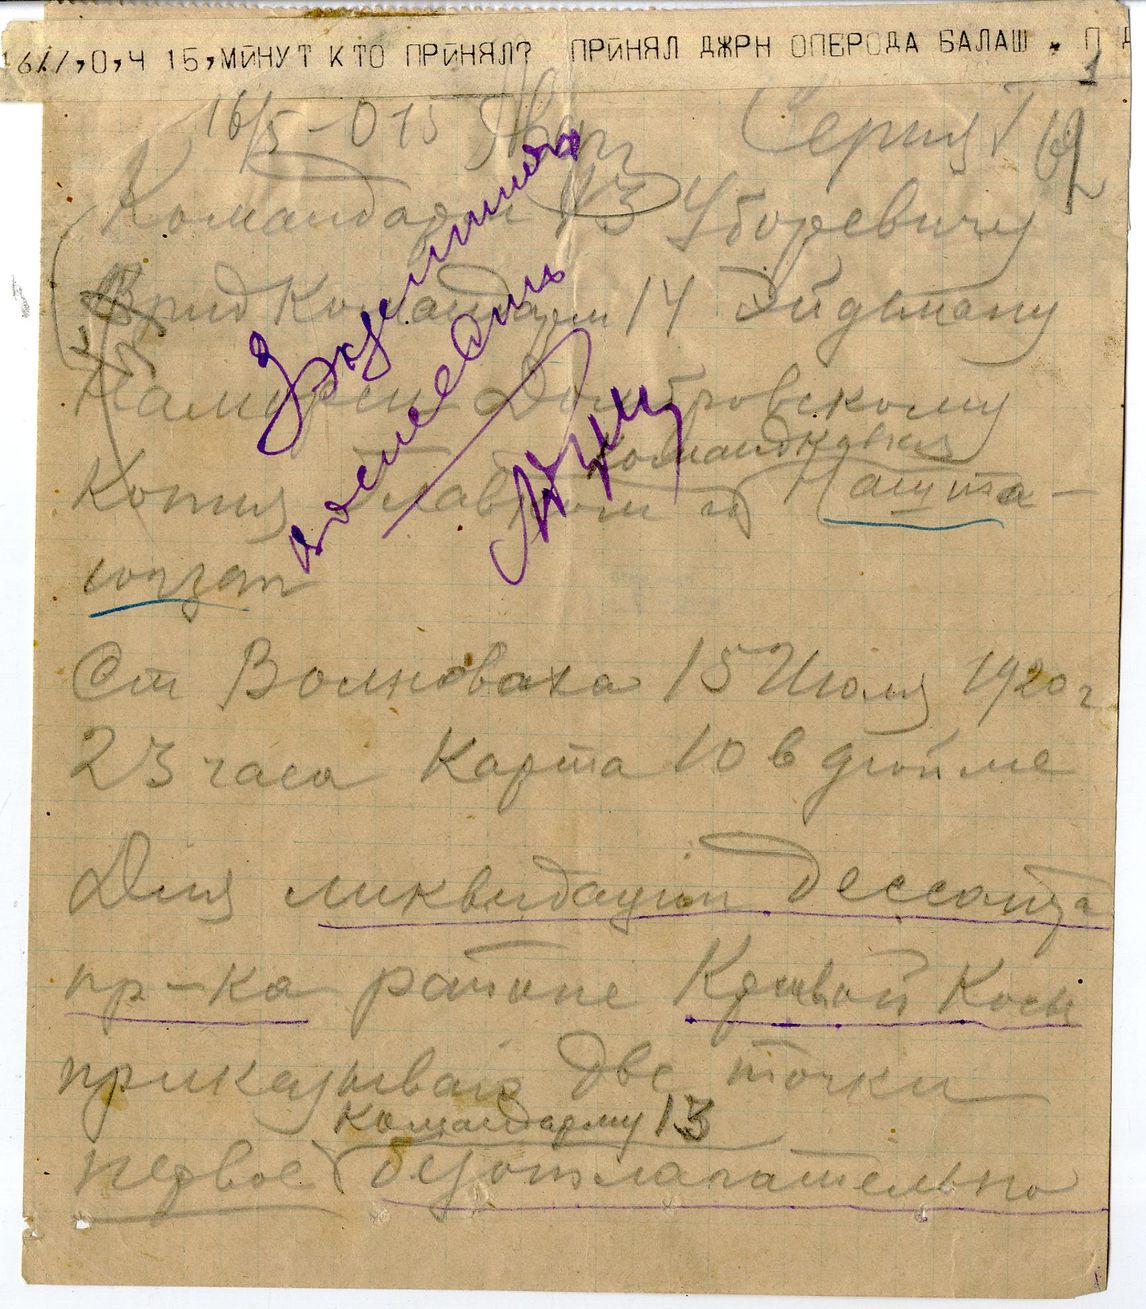 16///,0,Ч 15,МИНУТ КТО ПРИНЯЛ? ПРИНЯЛ ДЖРН ОПЕРОДА БАЛАШ. П
1
16/5-015 Серия Г
Командарм 13 Уборевичу
Врид Командарм 14 Эйдеману
Наморси Домбровскому
Командкавказ
Копия Главком и Нашта-
югзап
Ст Волноваха 15 Июля 1920 г
23 часа Карта 10 в дюйме
Для ликвидации Дессанта
пр-ка районе Кривой Косы
приказываю две точки
Командарму 13
первое безотлагательно